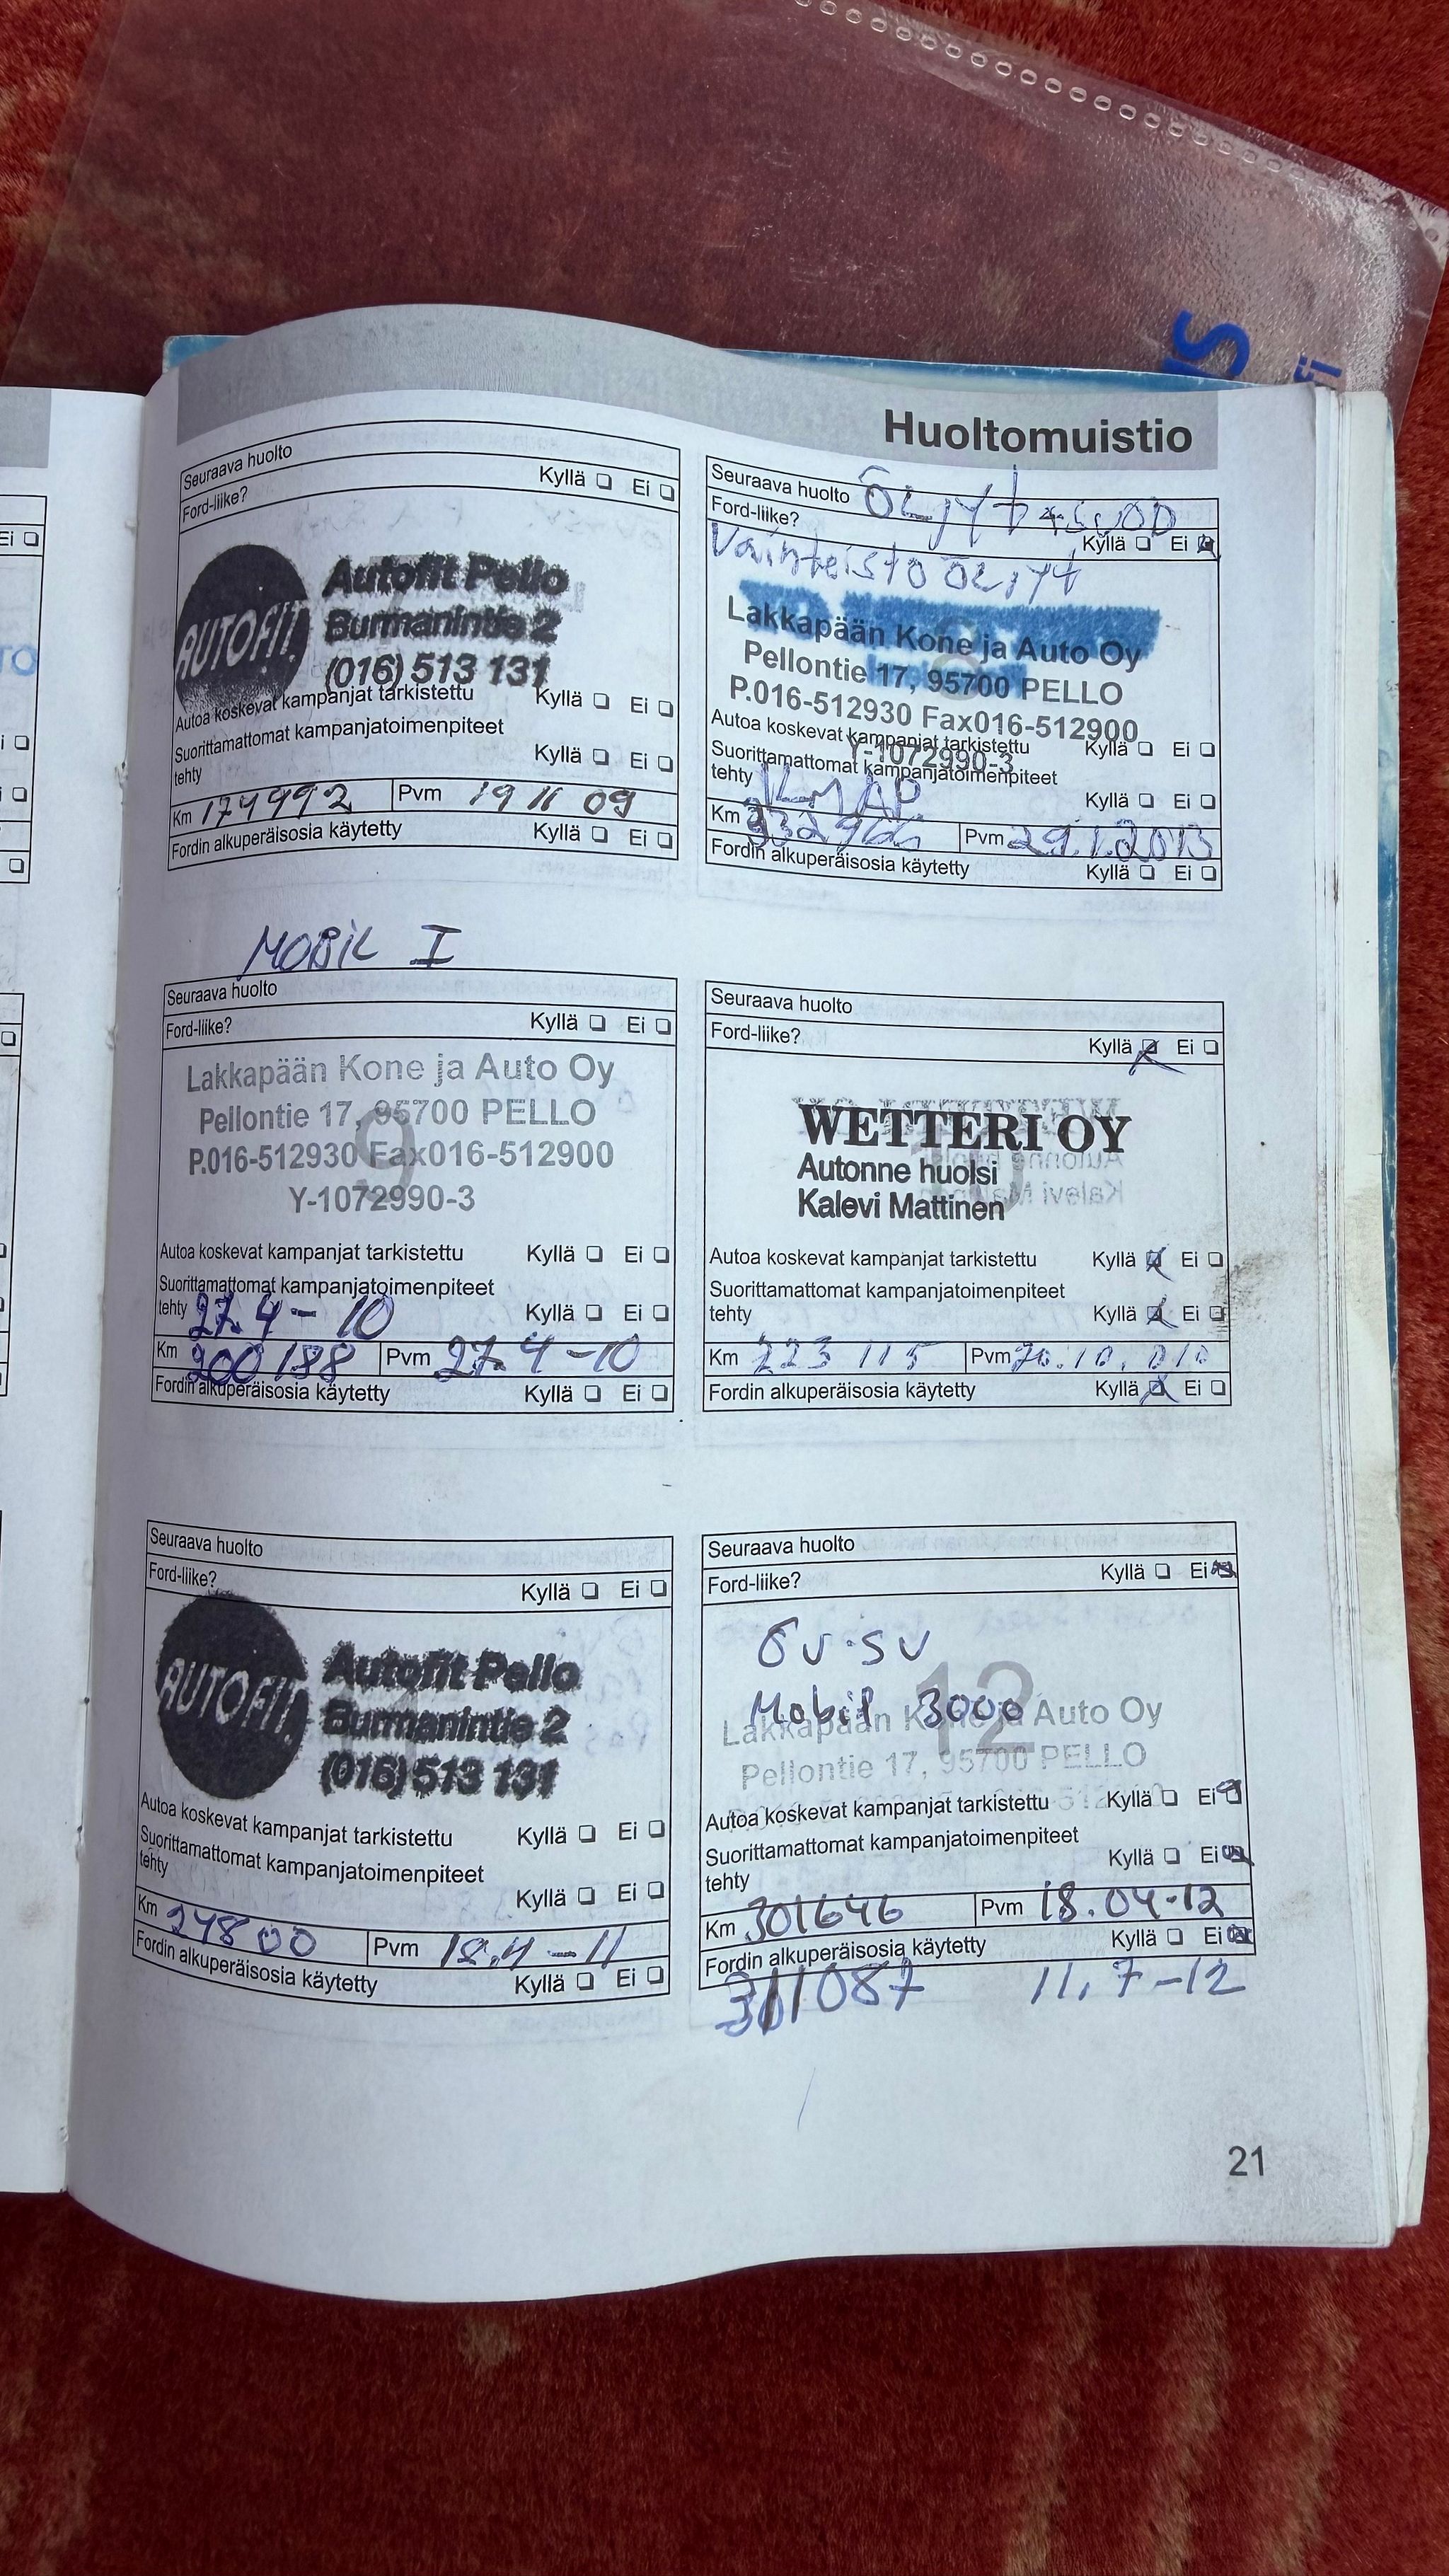 Huoltomuistio
Seuraava huolto
Ford-liike? Kyllä ❏ Ei ❏
AUTOFIT
Autofit Pello
Burmanintie 2
(016) 513 131
Autoa koskevat kampanjat tarkistettu Kyllä ❏ Ei ❏
Suorittamattomat kampanjatoimenpiteet
tehty Kyllä ❏ Ei ❏
Km 174992 Pvm 19 11 09
Fordin alkuperäisosia käytetty Kyllä ❏ Ei ❏
Seuraava huolto ÖLJYT
Ford-liike? Kyllä ❏ Ei ☒
Vainteisto ÖLJYt
8
Lakkapään Kone ja Auto Oy
Pellontie 17, 95700 PELLO
P.016-512930 Fax016-512900
Y-1072990-3
Autoa koskevat kampanjat tarkistettu Kyllä ❏ Ei ❏
Suorittamattomat kampanjatoimenpiteet
tehty Kyllä ❏ Ei ❏
Km 332966 Pvm 29.1.2013
Fordin alkuperäisosia käytetty Kyllä ❏ Ei ❏
MOBIL I
Seuraava huolto
Ford-liike? Kyllä ❏ Ei ❏
9
Lakkapään Kone ja Auto Oy
Pellontie 17, 95700 PELLO
P.016-512930 Fax016-512900
Y-1072990-3
Autoa koskevat kampanjat tarkistettu Kyllä ❏ Ei ❏
Suorittamattomat kampanjatoimenpiteet
tehty 27.4-10 Kyllä ❏ Ei ❏
Km 200188 Pvm 27.4-10
Fordin alkuperäisosia käytetty Kyllä ❏ Ei ❏
Seuraava huolto
Ford-liike? Kyllä ☒ Ei ❏
10
WETTERI OY
Autonne huolsi
Kalevi Mattinen
Autoa koskevat kampanjat tarkistettu Kyllä ☒ Ei ❏
Suorittamattomat kampanjatoimenpiteet
tehty Kyllä ☒ Ei ❏
Km 223 115 Pvm
Fordin alkuperäisosia käytetty Kyllä ☒ Ei ❏
Seuraava huolto
Ford-liike? Kyllä ❏ Ei ❏
AUTOFIT
Autofit Pello
Burmanintie 2
(016) 513 131
Autoa koskevat kampanjat tarkistettu Kyllä ❏ Ei ❏
Suorittamattomat kampanjatoimenpiteet
tehty Kyllä ❏ Ei ❏
Km 24800 Pvm 18.4-11
Fordin alkuperäisosia käytetty Kyllä ❏ Ei ❏
Seuraava huolto
Ford-liike? Kyllä ❏ Ei ☒
12
Mobil 3000
Lakkapään Kone ja Auto Oy
Pellontie 17, 95700 PELLO
Autoa koskevat kampanjat tarkistettu Kyllä ❏ Ei ☒
Suorittamattomat kampanjatoimenpiteet
tehty Kyllä ❏ Ei ☒
Km 301646 Pvm 18.04-12
Fordin alkuperäisosia käytetty Kyllä ❏ Ei ☒
311087 11.7-12
21